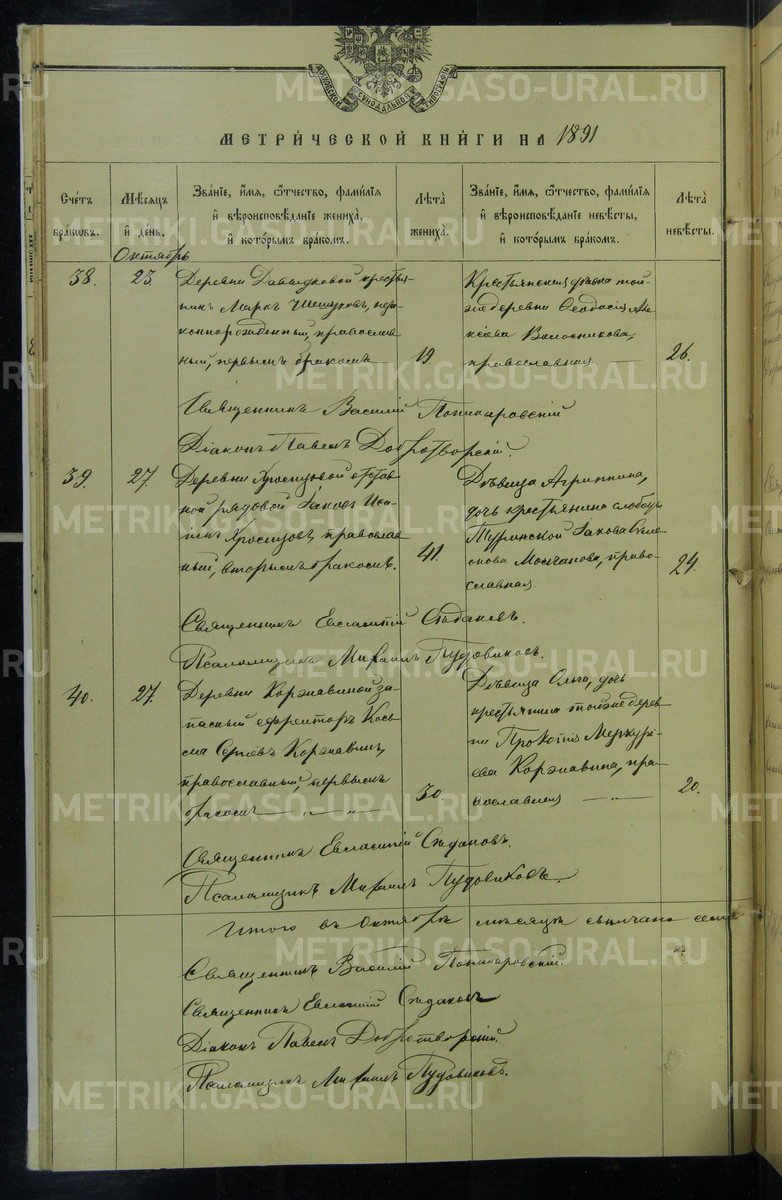 МОСКОВСКОЙ СУНОДАЛЬНОЙ ТИПОГРАФІИ
МЕТРИ́ЧЕСКОЙ КНИ́ГИ НА 1891
Сче́тъ бра́ковъ.
Мѣ́сяцъ и҆ де́нь.
Зва́нїе, и҆́мѧ, ѻ҆́тчество, фами́лїѧ
и҆ вѣроисповѣ́данїе жениха̀,
и҆ кото́рымъ бра́комъ.
Лѣ́та жениха̀.
Зва́нїе, и҆́мѧ, ѻ҆́тчество, фами́лїѧ
и҆ вѣроисповѣ́данїе невѣ́сты,
и҆ кото́рымъ бра́комъ.
Лѣ́та невѣ́сты.
Октябрь
38.
23.
Деревни Давыдковой крестья-
нинъ Маркъ Шешуковъ, неза-
коннорожденный, православ-
ный, первымъ бракомъ
19.
Крестьянская дѣвка той-
же деревни Ѳеодосія Але-
ксѣева Волосникова,
православная
26.
Священникъ Василій Пономаровскій
Діаконъ Павелъ Добротворскій.
39.
27.
Деревни отстав-
ной рядовой Иса-
інъ православ-
ный, вторымъ бракомъ.
41.
Дѣвица Агриппина,
дочь крестьянина слободы
Туринской Іакова
Молчанова, право-
славная
24.
Священникъ Евлампій
Псаломщикъ Михаилъ Пудовиковъ.
40.
27.
Деревни Коржавиной за-
пасный ефрейторъ Кось-
ма Коржавинъ,
православный, первымъ
бракомъ — " — "
30.
Дѣвица Ольга, дочь
крестьянина тойже дерев-
ни Прокопія Меркурі-
ева Коржавина, пра-
вославная — " —
20.
Священникъ Евлампій
Псаломщикъ Михаилъ Пудовиковъ.
Итого въ Октябрѣ мѣсяцѣ вѣнчано семь
Священникъ Василій Пономаровскій.
Священникъ Евлампій
Діаконъ Павелъ Добротворскій.
Псаломщикъ Михаилъ Пудовиковъ.
METRIKI.GASO-URAL.RU